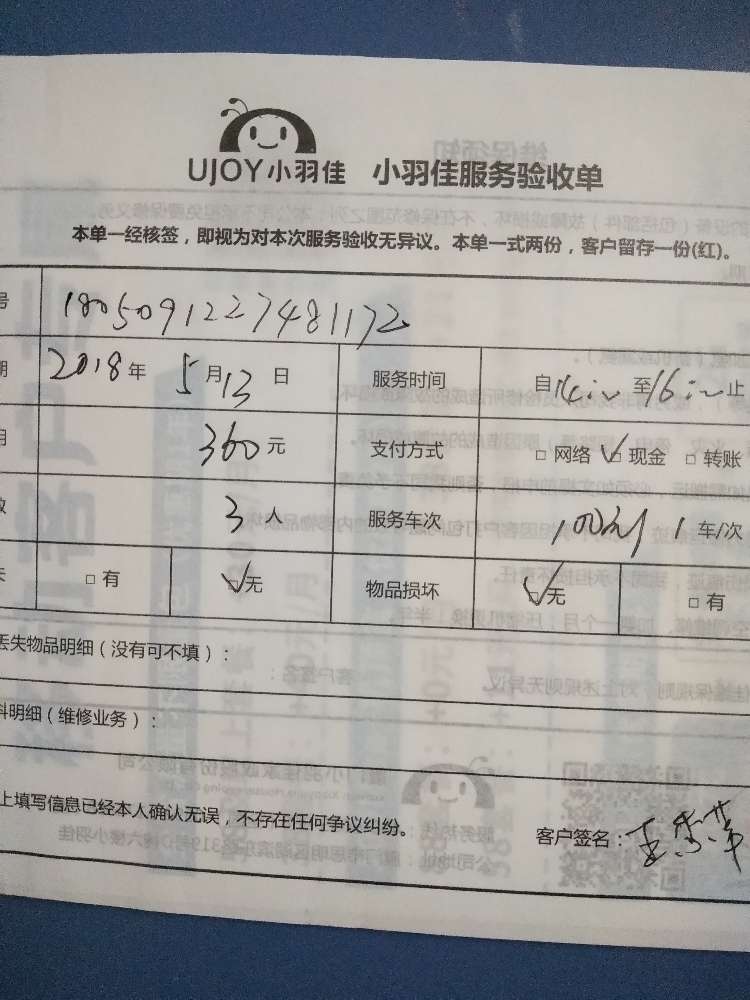 UJOY小羽佳 小羽佳服务验收单
本单一经核签，即视为对本次服务验收无异议。本单一式两份，客户留存一份(红)。
号 1805091227481172
期 2018年 5月13日 服务时间 自14:00至16:00止
用 360元 支付方式 □ 网络 ☑ 现金 □ 转账
数 3人 服务车次 1车/次
失 □ 有 ☑无 物品损坏 ☑无 □ 有
丢失物品明细（没有可不填）：
料明细（维修业务）：
上填写信息已经本人确认无误，不存在任何争议纠纷。 客户签名：